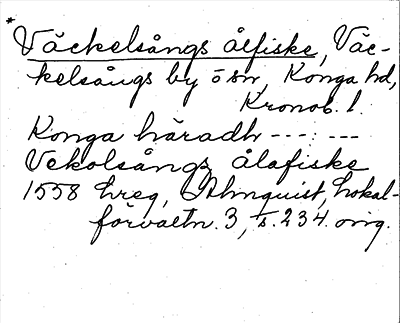 * Väckelsångs ålfiske, Väc-
kelsångs by o sn, Konga hd,
Kronob. l.
Konga häradh ---:---
Vekolsångz ålafiske
1558 hreg, Almquist, Lokal-
förvaltn. 3, s. 234. orig.